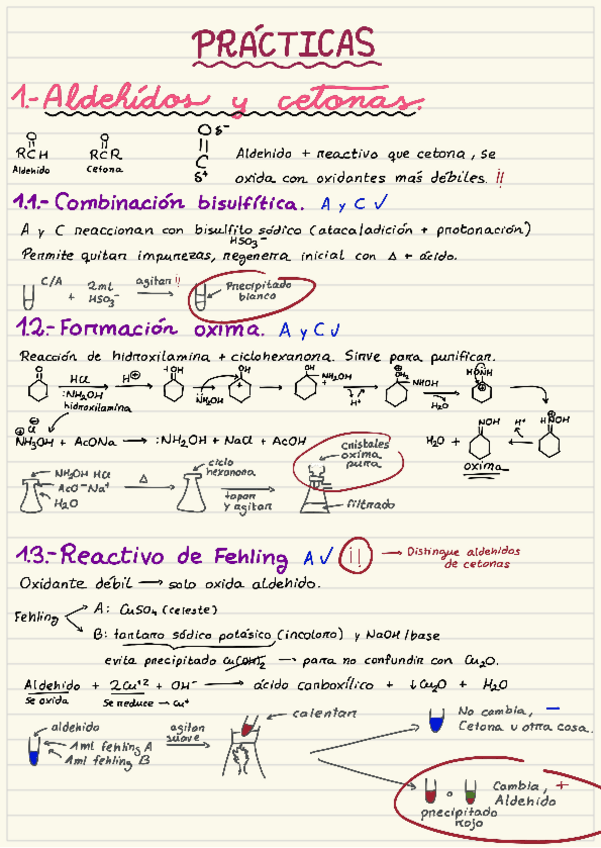 PRÁCTICAS
1.- Aldehídos y cetonas.
O
RCH
Aldehído
O
RCR
Cetona
O δ-
C
δ+
Aldehído + reactivo que cetona, se
oxida con oxidantes más débiles. !!
1.1.- Combinación bisulfítica. A y C ✓
A y C reaccionan con bisulfito sódico (ataca/adición + protonación)
HSO3-
Permite quitar impurezas, regenera inicial con Δ + ácido.
C/A
+ 2ml HSO3-
agitar !!
Precipitado
blanco
1.2.- Formación oxima. A y C ✓
Reacción de hidroxilamina + ciclohexanona. Sirve para purificar.
HCl
:NH2OH
hidroxilamina
H+
NH2OH
H+
NHOH
H2O
NH3OH + AcONa → :NH2OH + NaCl + AcOH
H2O +
NOH
oxima
H+
NH2OH HCl
AcO-Na+
H2O
Δ
ciclo
hexanona
tapar
y agitar
Cristales
oxima
pura
filtrado
1.3.- Reactivo de Fehling A ✓ !! → Distingue aldehídos
de cetonas
Oxidante débil → solo oxida aldehído.
Fehling
A: CuSO4 (celeste)
B: tartaro sódico potásico (incoloro) y NaOH/base
evita precipitado Cu(OH)2 → para no confundir con Cu2O.
Aldehído + 2Cu+2 + OH- → ácido carboxílico + ↓Cu2O + H2O
Se oxida
Se reduce → Cu+
aldehído
1ml fehling A
1ml fehling B
agitar
suave
calentar
No cambia, -
Cetona u otra cosa.
o
Cambia, +
Aldehído
precipitado
rojo